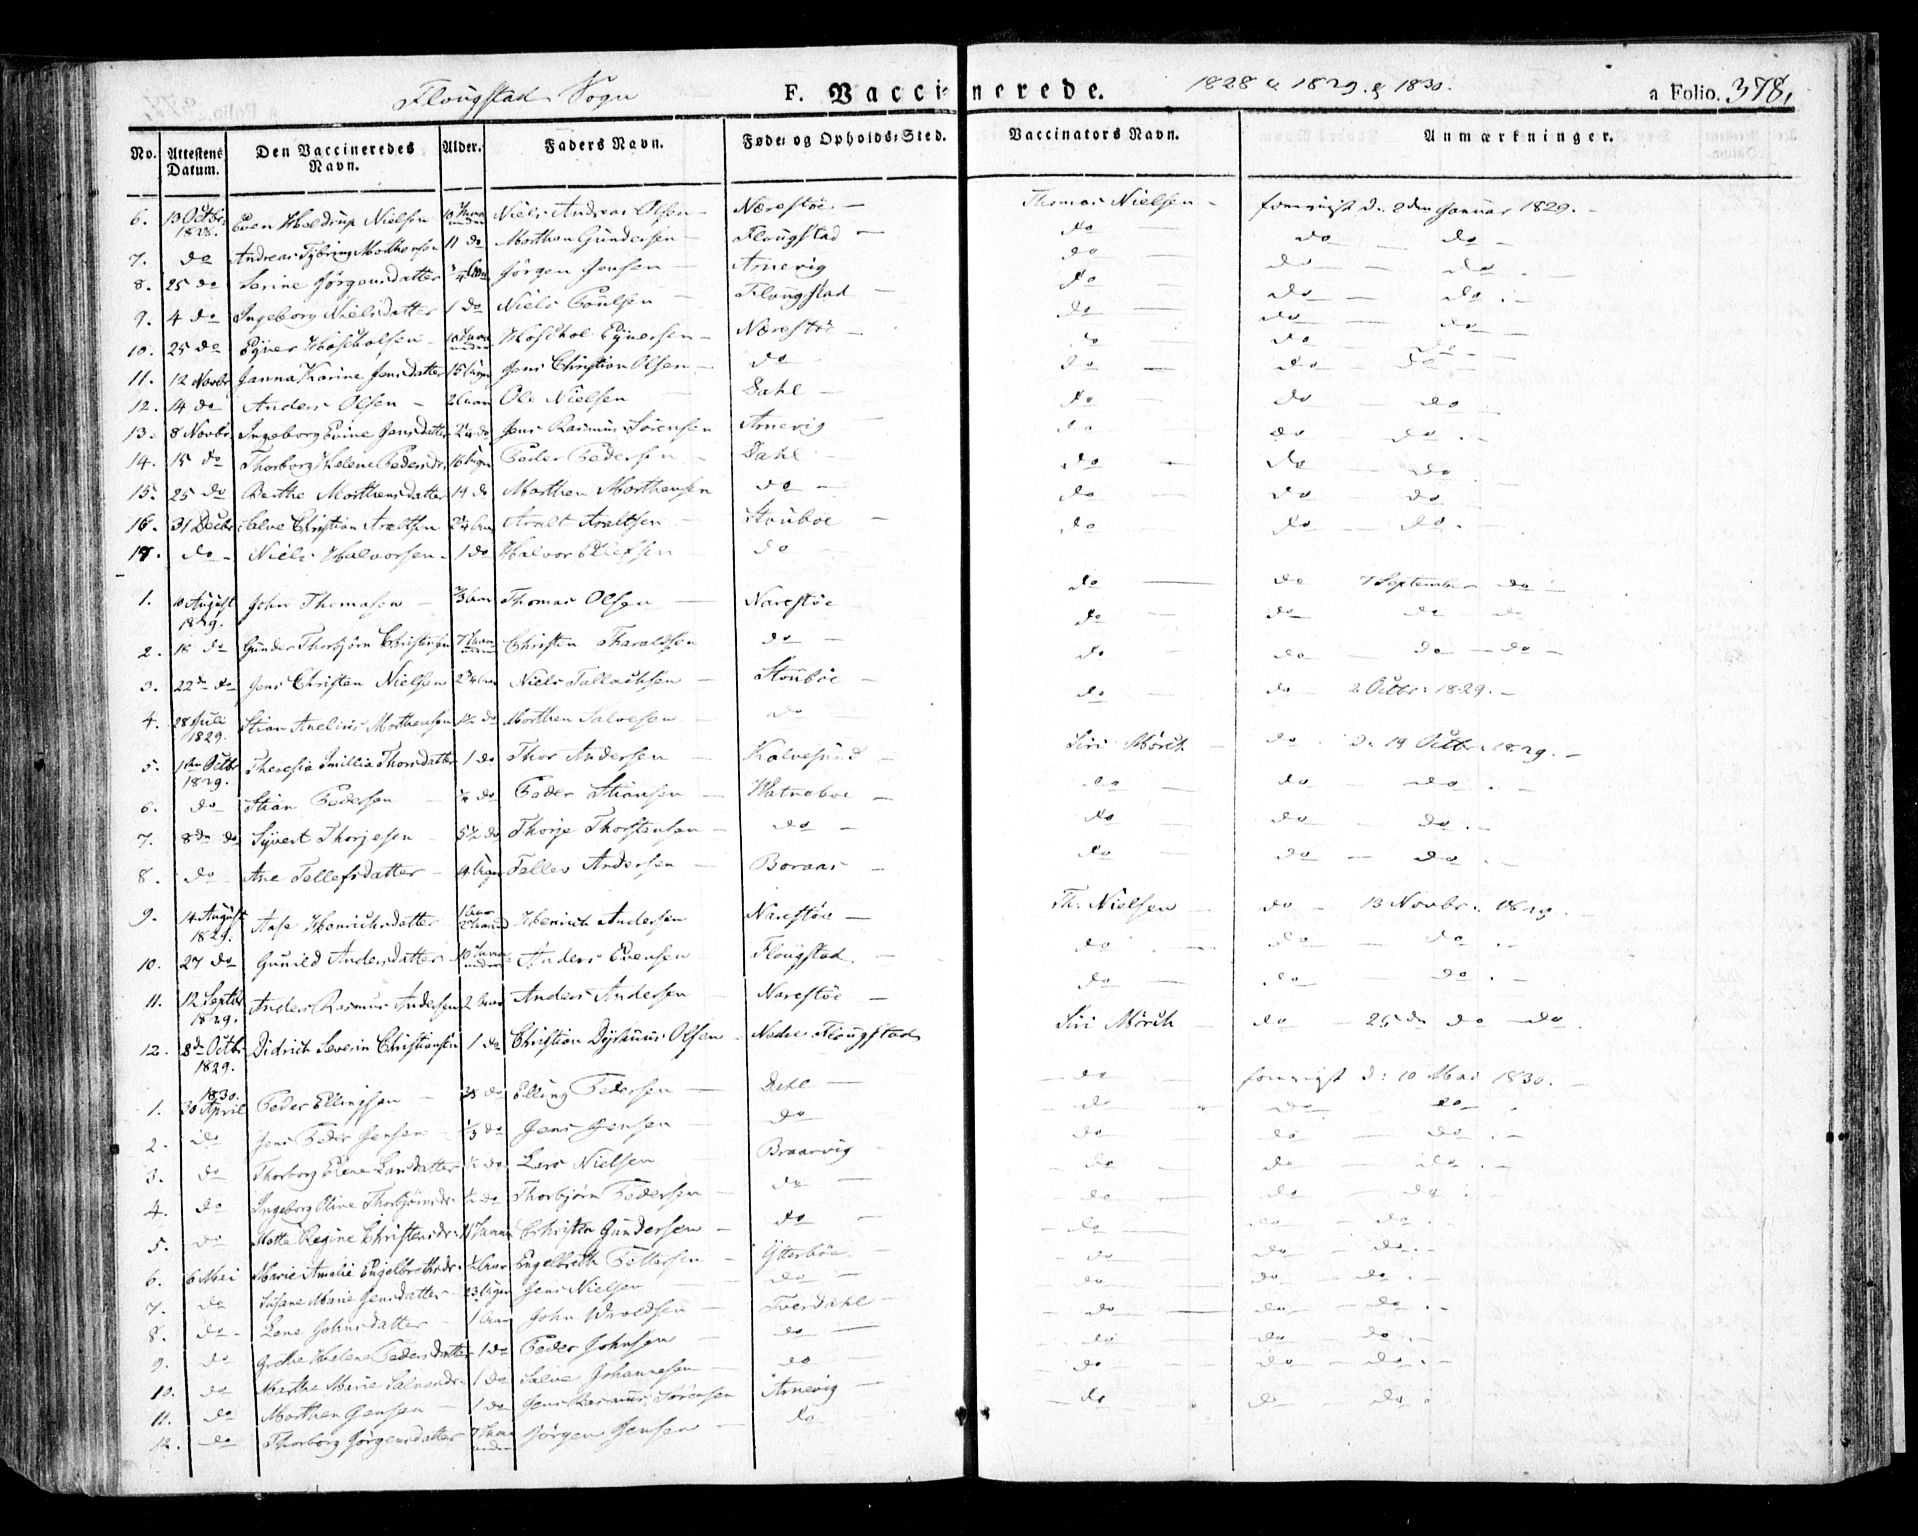 Flougstad Sogn F. Vaccinerede. 1828 & 1829 & 1830. a Folio. 378.
No. Attestens Datum. Den Vaccineredes Navn. Alder. Faders Navn. Føde- og Opholds-Sted. Vaccinators Navn. Anmærkninger.
6. 13 Octbr 1828. Even Holdrup Nielsen 10 Niels Andreas Olsen Narestøe Thomas Nielsen d: 2den Januar 1829.
7. do Andreas Tybring Morthensen 11 do Morthen Gundersen Flougstad do do do
8. 25 do Serine Jørgensdatter Jørgen Jensen Arnevig do do do
9. 4 do Ingeborg Nielsdatter 1 do Niels Poulsen Flougstad do do do
10. 25 do Ejner Hoskolsen 10 Hoskol Ejnersen Narestøe do do do
11. 12 Novbr Janna Karine Jensdatter 15 Uger Jens Christian Olsen do do do do
12. 14 do Anders Olsen 2 Aar Ole Nielsen Dahl do do do
13. 8 Novbr Ingeborg Evine Jensdatter 2¼ do Jens Rasmus Sørensen Arnevig do do do
14. 15 do Thorborg Helene Pedersdr. 16 Uger Peder Pedersen Dahl do do do
15. 25 do Berthe Morthensdatter 14 do Morthen Morthensen do do do do
16. 31 Decbr Salve Christian Araltsen 2¼ Aar Aralt Araltsen Stoubøe do do do
17. do Niels Halvorsen 1 do Halvor Ellefsen do do do do
1. 10 August 1829. John Thomasen ⅔ Aar Thomas Olsen Narestøe do do 7 September do
2. 18 do Gunder Thorbjørn Christensen 7 Christen Tharaldsen do do do do do
3. 22de do Jens Christen Nielsen 2¾ Aar Niels Tallachsen Stoubøe do do do do
4. 28 Juli 1829. Stian Anelius Morthensen ½ do Morthen Salvesen do do do 2 Octbr: 1829.
5. 1ste Octbr 1829. Theresia Emillia Thorsdatter 1 do Thor Andersen Kalvesund Siri Mørch do d: 19 Octbr: 1829.
6. do Stian Pedersen ¼ do Peder Stiansen Watneboe do do do
7. 8de do Syvert Thorjesen 5½ do Thorje Thorstensen do do do do
8. do Ane Tellefsdatter 4 Uger Tellev Andersen Boraas do do do
9. 14 August 1829. Aase Henrichsdatter 1 Aar Henrich Andersen Narestøe Th: Nielsen do 13 Novbr: 1829.
10. 27 do Gunild Andersdatter 10 Anders Evensen Flougstad do do do
11. 12 Septbr 1829. Anders Rasmus Andersen 2 Aar Anders Andersen Narestøe do do do
12. 8de Octbr 1829. Didrich Severin Christiansen 1 do Christian Olsen Nedre Flougstad Siri Mørch do 25de do do
1. 1830. 30 April Peder Ellingsen do Elling Pedersen Dahl do d: 10 Mai 1830.
2. do Jens Peder Jensen ⅓ do Jens Jensen do do do do
3. do Thorborg Elene Larsdatter ½ do Lars Nielsen Braarvig do do do
4. do Ingeborg Oline Thorbjørnsdr. ½ do Thorbjørn Pedersen do do do do
5. do Regine Christensdr. Christen Gundersen do do do do
6. 6 Mai Marie Amalie Engelbrethsdr. Engelbreth Pettersen Ytterbøe do do do
7. do Susane Marie Jensdatter 23 Uger Jens Nielsen do do do do
8. do Lene Johnsdatter 1 Aar John Wroldsen Tverdahl do do do
9. do Grethe Helene Pedersdatter 1 do Peder Johnsen do do do do
10. do Marthe Marie Salvesdr. 1 do Salve Johannesen do do do do
11. do Morthen Jensen 1 do Jens Rasmus Sørensen Arnevig do do do
12. do Thorborg Jørgensdatter 7 Jørgen Jensen do do do do